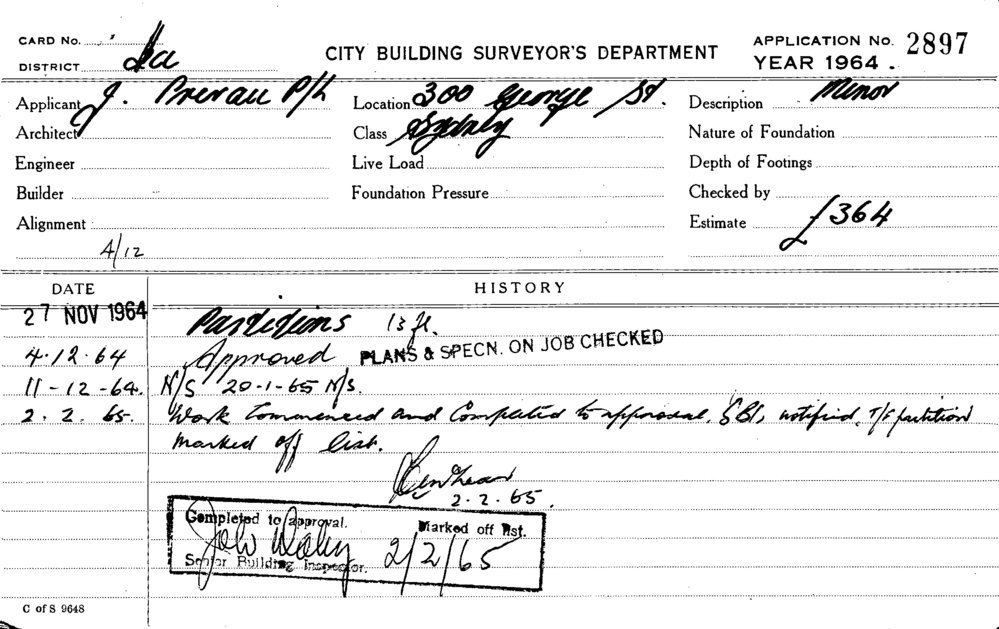 CARD No.
DISTRICT
CITY BUILDING SURVEYOR'S DEPARTMENT
APPLICATION No. 2897
YEAR 1964.
Applicant J. P/L
Location 300 George St.
Description Minor
Architect
Class Sydney
Nature of Foundation
Engineer
Live Load
Depth of Footings
Builder
Foundation Pressure
Checked by
Alignment
Estimate £364
4/12
DATE
HISTORY
27 NOV 1964 Partitions 13 fl.
4.12.64 Approved PLANS & SPECN. ON JOB CHECKED
11-12-64. N/S 20-1-65 N/S.
2.2.65. Work Commenced and Completed to approval. SBI, notified, T/F partition
marked off list.
2.2.65.
Completed to approval. Marked off list.
2/2/65
Senior Building Inspector.
C of S 9648